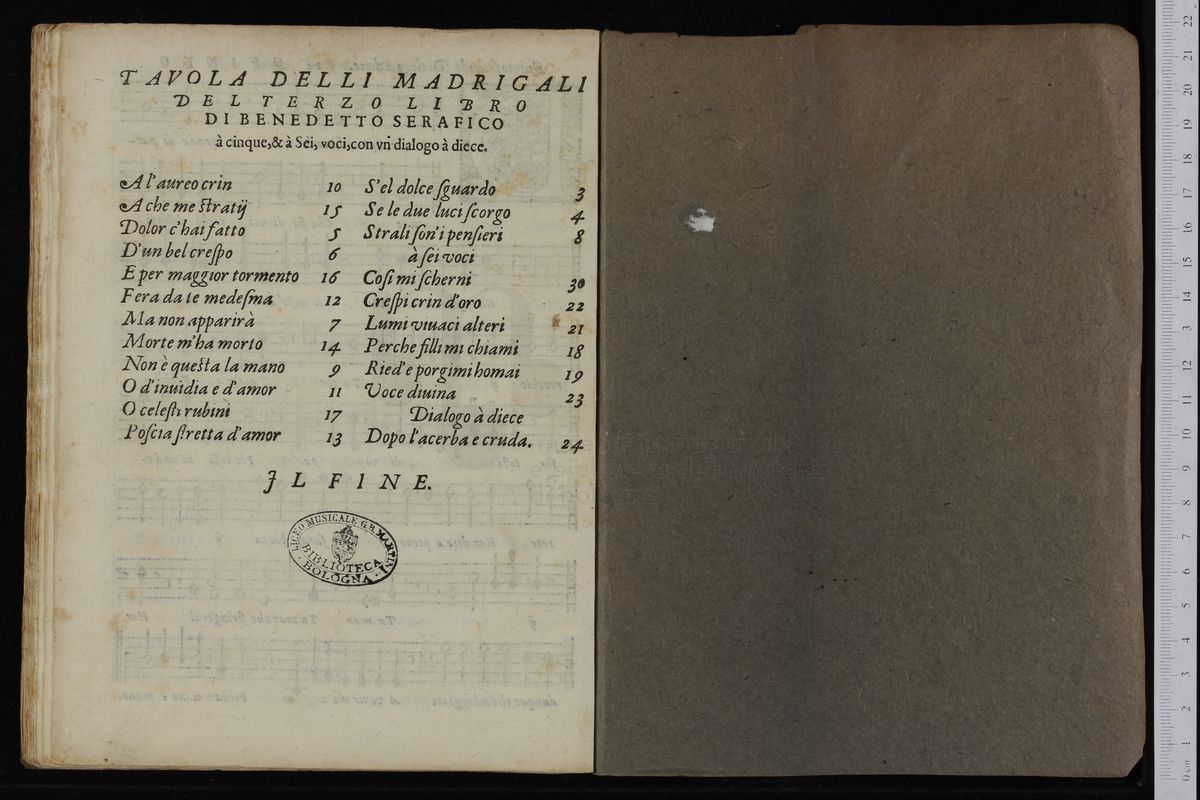 TAVOLA DELLI MADRIGALI
DEL TERZO LIBRO
DI BENEDETTO SERAFICO
à cinque,& à Sei, voci,con vn dialogo à diece.
A l'aureo crin 10
A che me stratij 15
Dolor c'hai fatto 5
D'un bel crespo 6
E per maggior tormento 16
Fera da te medesma 12
Ma non apparirà 7
Morte m'ha morto 14
Non è questa la mano 9
O d'inuidia e d'amor 11
O celesti rubini 17
Poscia stretta d'amor 13
S'el dolce sguardo 3
Se le due luci scorgo 4
Strali son'i pensieri 8
à sei voci
Cosi mi scherni 30
Crespi crin d'oro 22
Lumi viuaci alteri 21
Perche filli mi chiami 18
Ried'e porgimi homai 19
Voce diuina 23
Dialogo à diece
Dopo l'acerba e cruda. 24
IL FINE.
LICEO MUSICALE G.B. MARTINI
BIBLIOTECA
BOLOGNA